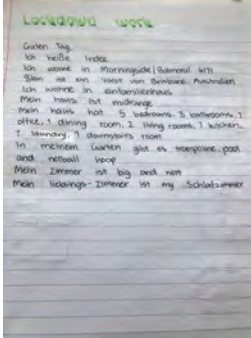 Lockdown work
Guten Tag
Ich heiße Indee
Ich wohne in Morningside/Balmoral 4171
ist ein vorst von Brisbane, Australien
Ich wohne in einfamilienhaus
Mein haus ist midrange
Mein haus hat 5 bedrooms, 3 bathrooms, 1
office, 1 dining room, 2 living rooms, 1 kitchen,
1 laundry, 1 downstairs room
In meinem Garten gibt es trampoline, pool
and netball hoop
Mein zimmer ist big and nett
Mein lieblings-zimmer ist my Schlafzimmer